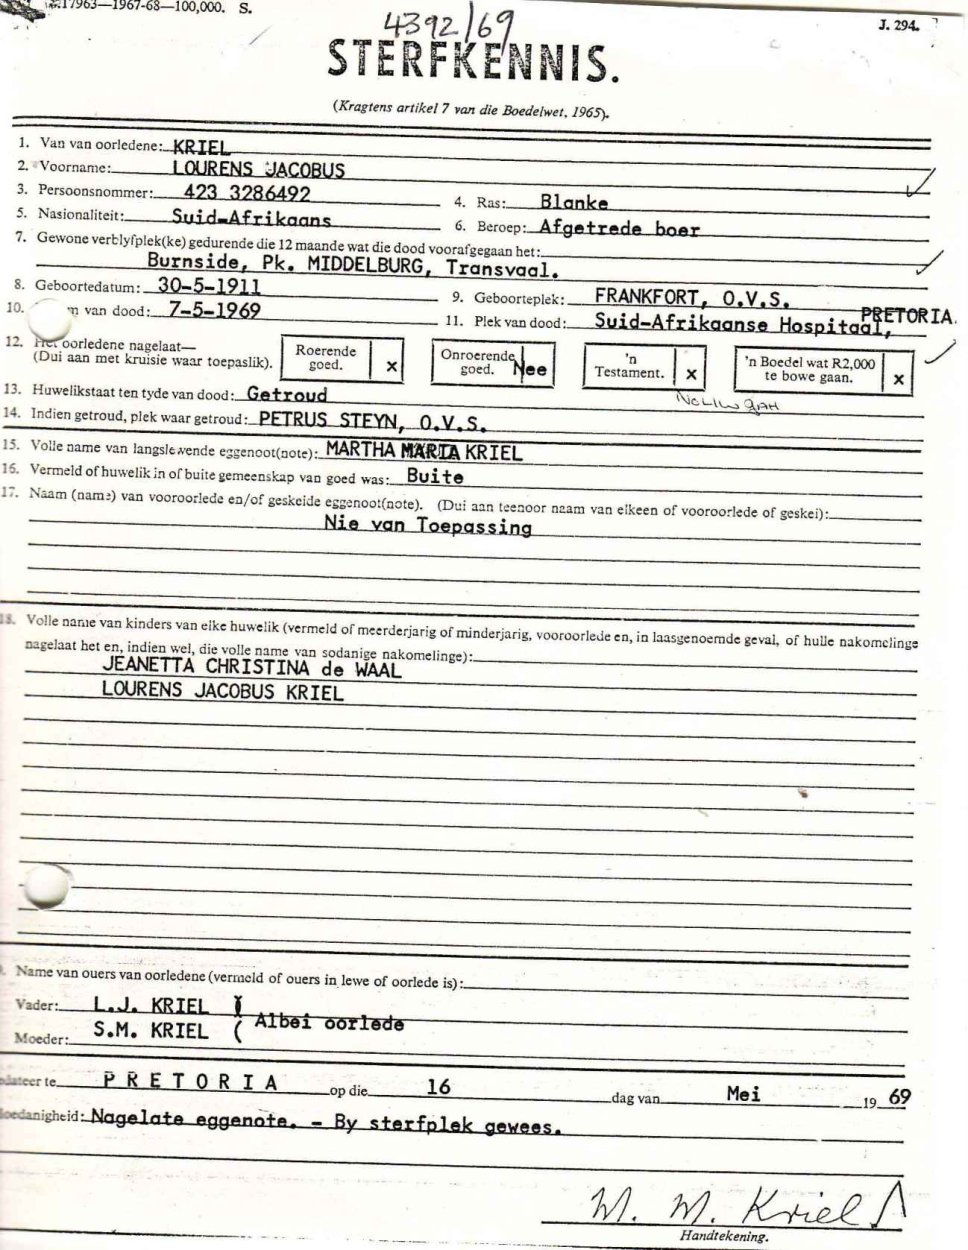 17963—1967-68—100,000. S.
4392/69
J. 294.
STERFKENNIS.
(Kragtens artikel 7 van die Boedelwet, 1965).
1. Van van oorledene: KRIEL
2. Voorname: LOURENS JACOBUS
3. Persoonsnommer: 423 3286492 4. Ras: Blanke
5. Nasionaliteit: Suid-Afrikaans 6. Beroep: Afgetrede boer
7. Gewone verblyfplek(ke) gedurende die 12 maande wat die dood voorafgegaan het:
Burnside, Pk. MIDDELBURG, Transvaal.
8. Geboortedatum: 30-5-1911 9. Geboorteplek: FRANKFORT, O.V.S.
10. van dood: 7-5-1969 11. Plek van dood: Suid-Afrikaanse Hospitaal, PRETORIA.
12. Het oorledene nagelaat—
(Dui aan met kruisie waar toepaslik).
Roerende goed. x
Onroerende goed. Nee
'n Testament. x
'n Boedel wat R2,000 te bowe gaan. x
13. Huwelikstaat ten tyde van dood: Getroud
14. Indien getroud, plek waar getroud: PETRUS STEYN, O.V.S.
15. Volle name van langslewende eggenoot(note): MARTHA MARIA KRIEL
16. Vermeld of huwelik in of buite gemeenskap van goed was: Buite
17. Naam (name) van vooroorlede en/of geskeide eggenoot(note). (Dui aan teenoor naam van elkeen of vooroorlede of geskei):
Nie van Toepassing
18. Volle name van kinders van elke huwelik (vermeld of meerderjarig of minderjarig, vooroorlede en, in laasgenoemde geval, of hulle nakomelinge
nagelaat het en, indien wel, die volle name van sodanige nakomelinge):
JEANETTA CHRISTINA de WAAL
LOURENS JACOBUS KRIEL
Name van ouers van oorledene (vermeld of ouers in lewe of oorlede is):
Vader: L.J. KRIEL (
Albei oorlede
Moeder: S.M. KRIEL (
te PRETORIA op die 16 dag van Mei 19 69
Nagelate eggenote. - By sterfplek gewees.
M. M. Kriel
Handtekening.